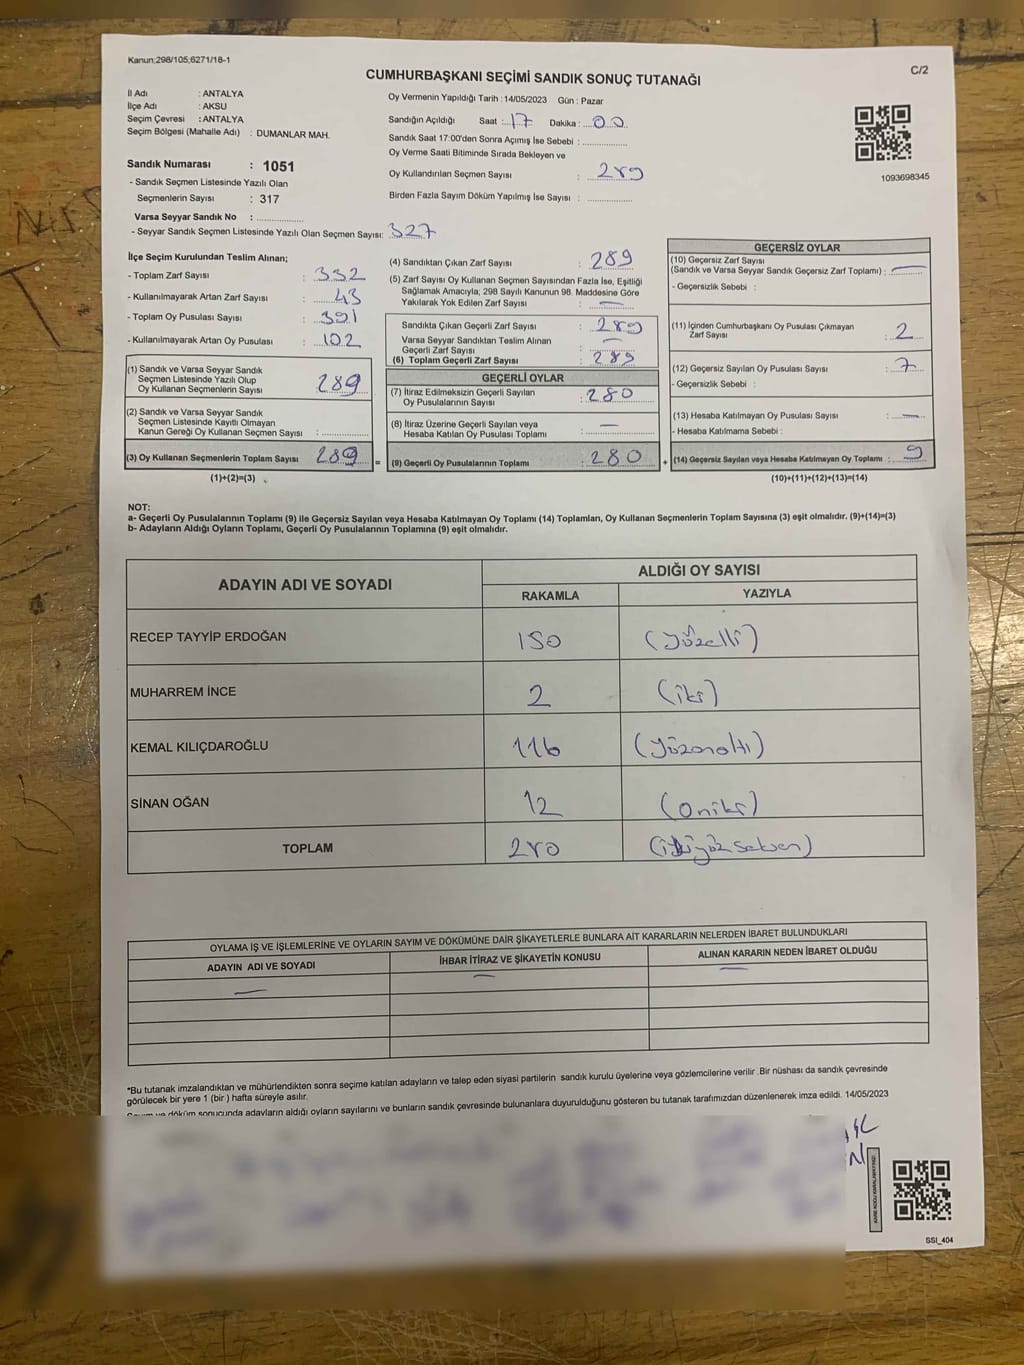 Kanun;298/105,6271/18-1
C/2
CUMHURBAŞKANI SEÇİMİ SANDIK SONUÇ TUTANAĞI
İl Adı : ANTALYA
İlçe Adı : AKSU
Seçim Çevresi : ANTALYA
Seçim Bölgesi (Mahalle Adı) : DUMANLAR MAH.
Sandık Numarası : 1051
- Sandık Seçmen Listesinde Yazılı Olan
Seçmenlerin Sayısı : 317
Varsa Seyyar Sandık No :
- Seyyar Sandık Seçmen Listesinde Yazılı Olan Seçmen Sayısı: 327
Oy Vermenin Yapıldığı Tarih : 14/05/2023 Gün : Pazar
Sandığın Açıldığı Saat : 17 Dakika : 00
Sandık Saat 17:00'den Sonra Açımış İse Sebebi :
Oy Verme Saati Bitiminde Sırada Bekleyen ve
Oy Kullandırılan Seçmen Sayısı : 289
Birden Fazla Sayım Döküm Yapılmış İse Sayısı :
1093698345
İlçe Seçim Kurulundan Teslim Alınan;
- Toplam Zarf Sayısı : 332
- Kullanılmayarak Artan Zarf Sayısı : 43
- Toplam Oy Pusulası Sayısı : 391
- Kullanılmayarak Artan Oy Pusulası : 102
(1) Sandık ve Varsa Seyyar Sandık
Seçmen Listesinde Yazılı Olup
Oy Kullanan Seçmenlerin Sayısı : 289
(2) Sandık ve Varsa Seyyar Sandık
Seçmen Listesinde Kayıtlı Olmayan
Kanun Gereği Oy Kullanan Seçmen Sayısı :
(3) Oy Kullanan Seçmenlerin Toplam Sayısı 289 =
(1)+(2)=(3)
(4) Sandıktan Çıkan Zarf Sayısı : 289
(5) Zarf Sayısı Oy Kullanan Seçmen Sayısından Fazla İse, Eşitliği
Sağlamak Amacıyla; 298 Sayılı Kanunun 98. Maddesine Göre
Yakılarak Yok Edilen Zarf Sayısı : —
Sandıkta Çıkan Geçerli Zarf Sayısı : 289
Varsa Seyyar Sandıktan Teslim Alınan
Geçerli Zarf Sayısı : —
(6) Toplam Geçerli Zarf Sayısı : 289
GEÇERLİ OYLAR
(7) İtiraz Edilmeksizin Geçerli Sayılan
Oy Pusulalarının Sayısı : 280
(8) İtiraz Üzerine Geçerli Sayılan veya
Hesaba Katılan Oy Pusulası Toplamı : —
(9) Geçerli Oy Pusulalarının Toplamı : 280 +
GEÇERSİZ OYLAR
(10) Geçersiz Zarf Sayısı
(Sandık ve Varsa Seyyar Sandık Geçersiz Zarf Toplamı) : —
- Geçersizlik Sebebi :
(11) İçinden Cumhurbaşkanı Oy Pusulası Çıkmayan
Zarf Sayısı : 2
(12) Geçersiz Sayılan Oy Pusulası Sayısı : 7
- Geçersizlik Sebebi :
(13) Hesaba Katılmayan Oy Pusulası Sayısı : —
- Hesaba Katılmama Sebebi :
(14) Geçersiz Sayılan veya Hesaba Katılmayan Oy Toplamı : 9
(10)+(11)+(12)+(13)=(14)
NOT:
a- Geçerli Oy Pusulalarının Toplamı (9) ile Geçersiz Sayılan veya Hesaba Katılmayan Oy Toplamı (14) Toplamları, Oy Kullanan Seçmenlerin Toplam Sayısına (3) eşit olmalıdır. (9)+(14)=(3)
b- Adayların Aldığı Oyların Toplamı, Geçerli Oy Pusulalarının Toplamına (9) eşit olmalıdır.
ADAYIN ADI VE SOYADI ALDIĞI OY SAYISI
RAKAMLA YAZIYLA
RECEP TAYYİP ERDOĞAN 150 (Yüzelli)
MUHARREM İNCE 2 (iki)
KEMAL KILIÇDAROĞLU 116 (Yüzonaltı)
SİNAN OĞAN 12 (Oniki)
TOPLAM 280 (ikiyüz seksen)
OYLAMA İŞ VE İŞLEMLERİNE VE OYLARIN SAYIM VE DÖKÜMÜNE DAİR ŞİKAYETLERLE BUNLARA AİT KARARLARIN NELERDEN İBARET BULUNDUKLARI
ADAYIN ADI VE SOYADI İHBAR İTİRAZ VE ŞİKAYETİN KONUSU ALINAN KARARIN NEDEN İBARET OLDUĞU
— — —
*Bu tutanak imzalandıktan ve mühürlendikten sonra seçime katılan adayların ve talep eden siyasi partilerin sandık kurulu üyelerine veya gözlemcilerine verilir .Bir nüshası da sandık çevresinde
görülecek bir yere 1 (bir ) hafta süreyle asılır.
döküm sonucunda adayların aldığı oyların sayılarını ve bunların sandık çevresinde bulunanlara duyurulduğunu gösteren bu tutanak tarafımızdan düzenlenerek imza edildi. 14/05/2023
SSI_404